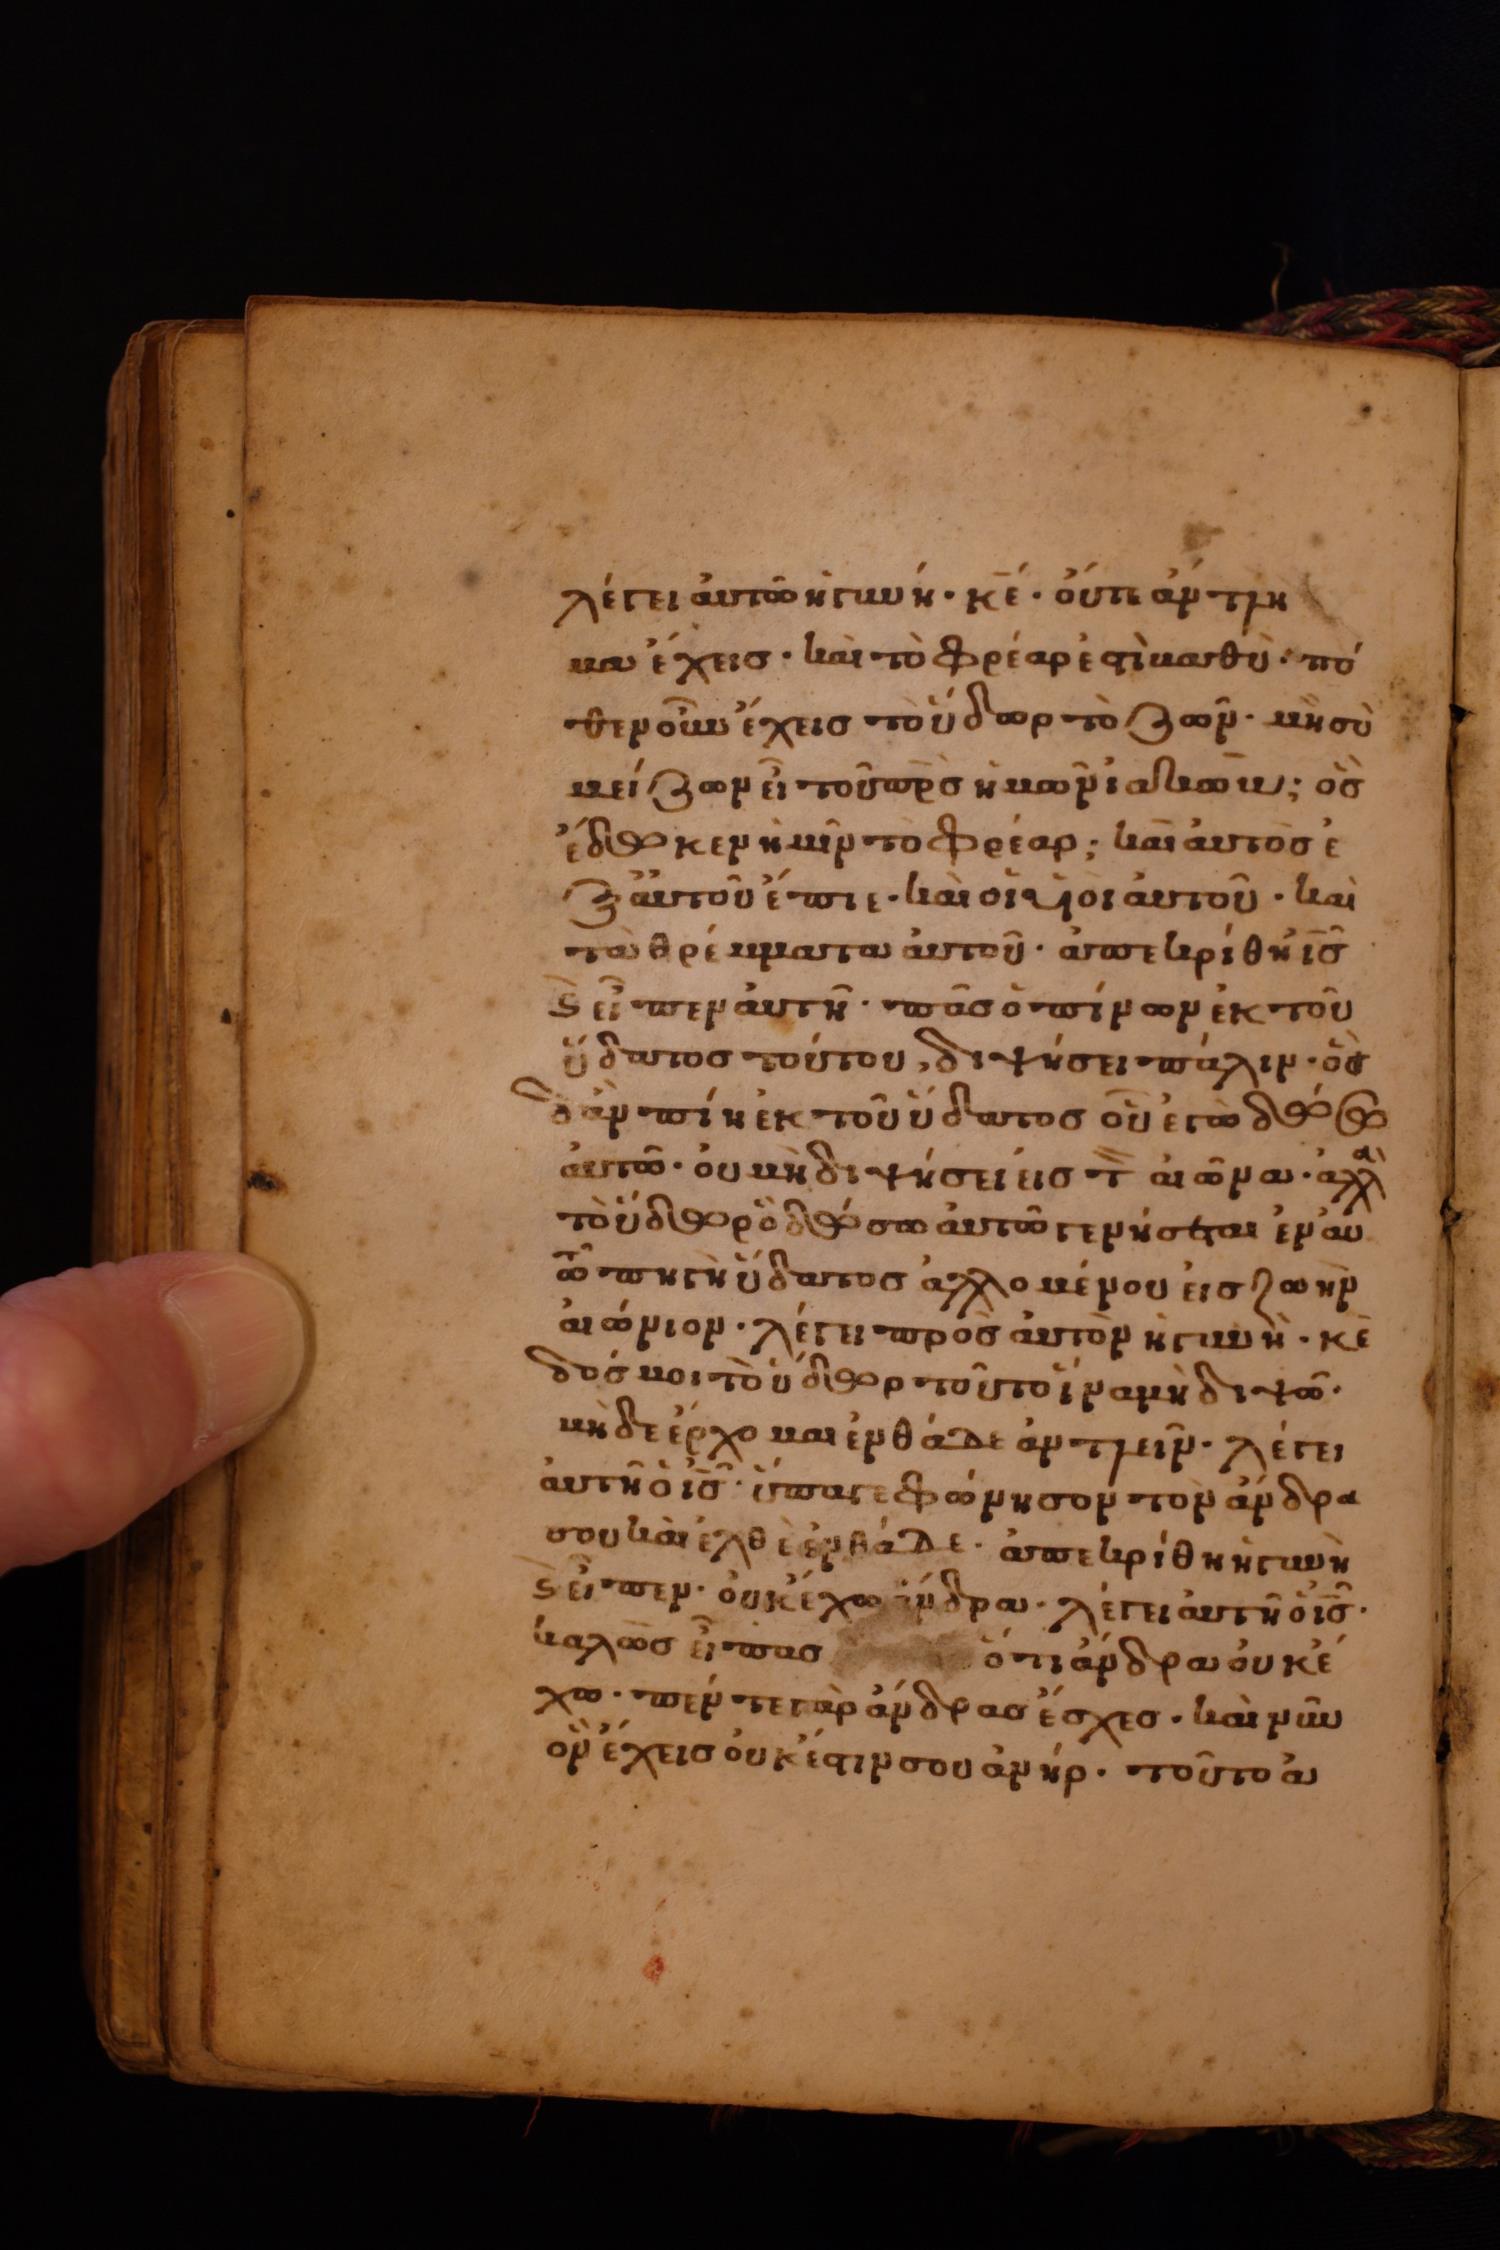 λέγει ἀυτῶ ἡ γυνή · κ̅ε̅ · ὀύτε ἀντλη
μα ἔχεις · καὶ τὸ φρέαρ ἐστὶ καθὺ · πό
θεν οὖν ἔχεις τὸ ὕδωρ τὸ ζῶν · μὴ σὺ
μείζων εἶ τοῦ π̅ρ̅ς ἡμῶν ἰακώβ; ὃς
ἔδωκεν ἡμῖν τὸ φρέαρ; καὶ ἀυτὸς ἐ
ξ ἀυτοῦ ἔπιε · καὶ οἱ ὑιὸι ἀυτοῦ · καὶ
τὰ θρέμματα ἀυτοῦ · ἀπεκρίθη ἰ̅ς̅
ϗ εἶπεν ἀυτῆ · πᾶς ὁ πίνων ἐκ τοῦ
ὕδατος τούτου, διψήσει πάλιν · ὃς
δ ἀν πίη ἐκ τοῦ ὕδατος οὗ ἐγὼ δώσω
ἀυτῶ · ὀυ μὴ διψήσει ἐις τ̅ ἀιῶνα · ἀλλὰ
τὸ ὕδωρ ὃ δώσω ἀυτῶ γενήσεται ἐν ἀυ
τῶ πηγὴ ὕδατος ἁλλομένου ἐις ζωὴν
ἀιώνιον · λέγει πρὸς ἀυτὸν ἡ γυνὴ · κ̅ε̅
δός μοι τὸ ὕδωρ τοῦτο ἵνα μὴ διψῶ ·
μὴδε ἔρχομαι ἐνθάδε ἀντλεῖν · λέγει
ἀυτῆ ὁ ἰ̅ς̅ · ὕπαγε φώνησον τὸν ἄνδρα
σου καὶ ἐλθὲ ἐνθάδε · ἀπεκρίθη ἡ γυνὴ
ϗ εἶπεν · ὀυκ ἔχω ἄνδρα · λέγει ἀυτῆ ὁ ἰ̅ς̅ ·
καλῶς εἶπας ὅτι ἄνδρα ὀυκ ἔ
χω · πέντε γὰρ ἄνδρας ἔσχες · καὶ νῦν
ὃν ἔχεις ὀυκ ἔστιν σου ἀνήρ · τοῦτο ἀ